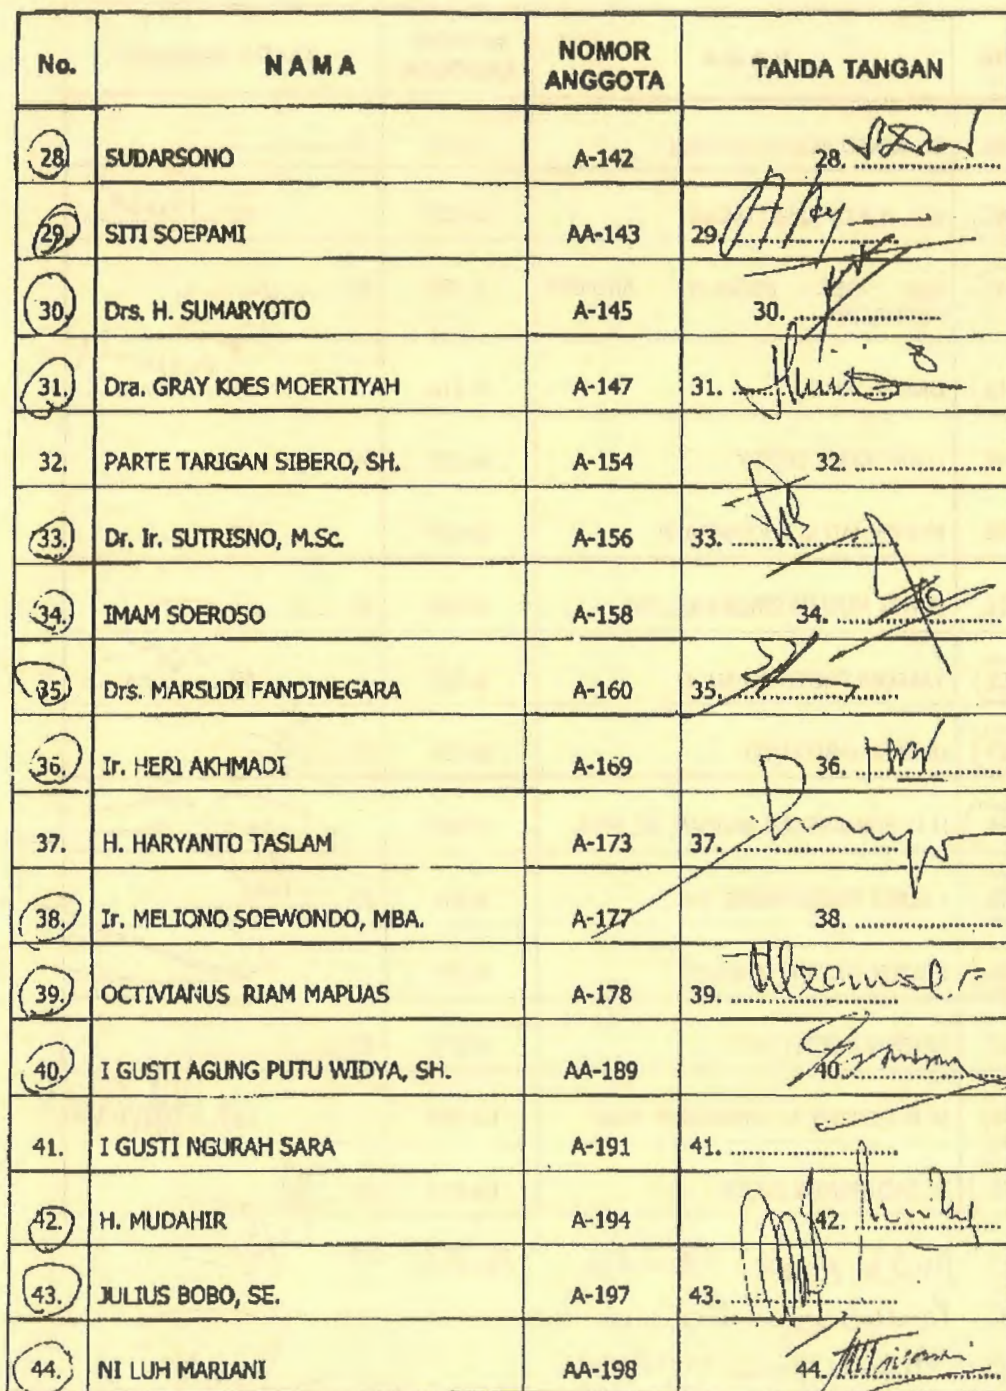 No. NAMA NOMOR ANGGOTA TANDA TANGAN
28. SUDARSONO A-142 28.
29. SITI SOEPAMI AA-143 29.
30. Drs. H. SUMARYOTO A-145 30.
31. Dra. GRAY KOES MOERTIYAH A-147 31.
32. PARTE TARIGAN SIBERO, SH. A-154 32.
33. Dr. Ir. SUTRISNO, M.Sc. A-156 33.
34. IMAM SOEROSO A-158 34.
35. Drs. MARSUDI FANDINEGARA A-160 35.
36. Ir. HERI AKHMADI A-169 36.
37. H. HARYANTO TASLAM A-173 37.
38. Ir. MELIONO SOEWONDO, MBA. A-177 38.
39. OCTIVIANUS RIAM MAPUAS A-178 39.
40. I GUSTI AGUNG PUTU WIDYA, SH. AA-189 40.
41. I GUSTI NGURAH SARA A-191 41.
42. H. MUDAHIR A-194 42.
43. JULIUS BOBO, SE. A-197 43.
44. NI LUH MARIANI AA-198 44.